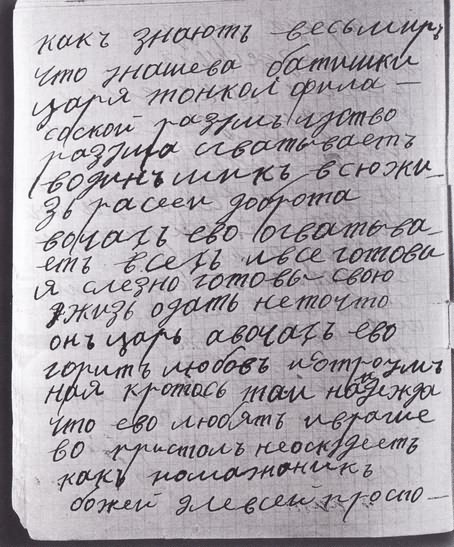 какъ знають весьмиръ
что унашева батишки
царя тонкои фила—
совской разумъ чуство
разума охватываетъ
водинъ микъ всюжи—
зь расеи доброта
вочахъ ево огватыва—
еть всехъ ивсе готовы
я слезно готовы свою
жизь одать неточто
онъ царь авочахъ ево
горитъ любовъ и отроумъ
ная кротось таи надежда
что ево любять ивраги
во пристолъ неоскудееть
какъ помазаникъ
божей длевсей просто—